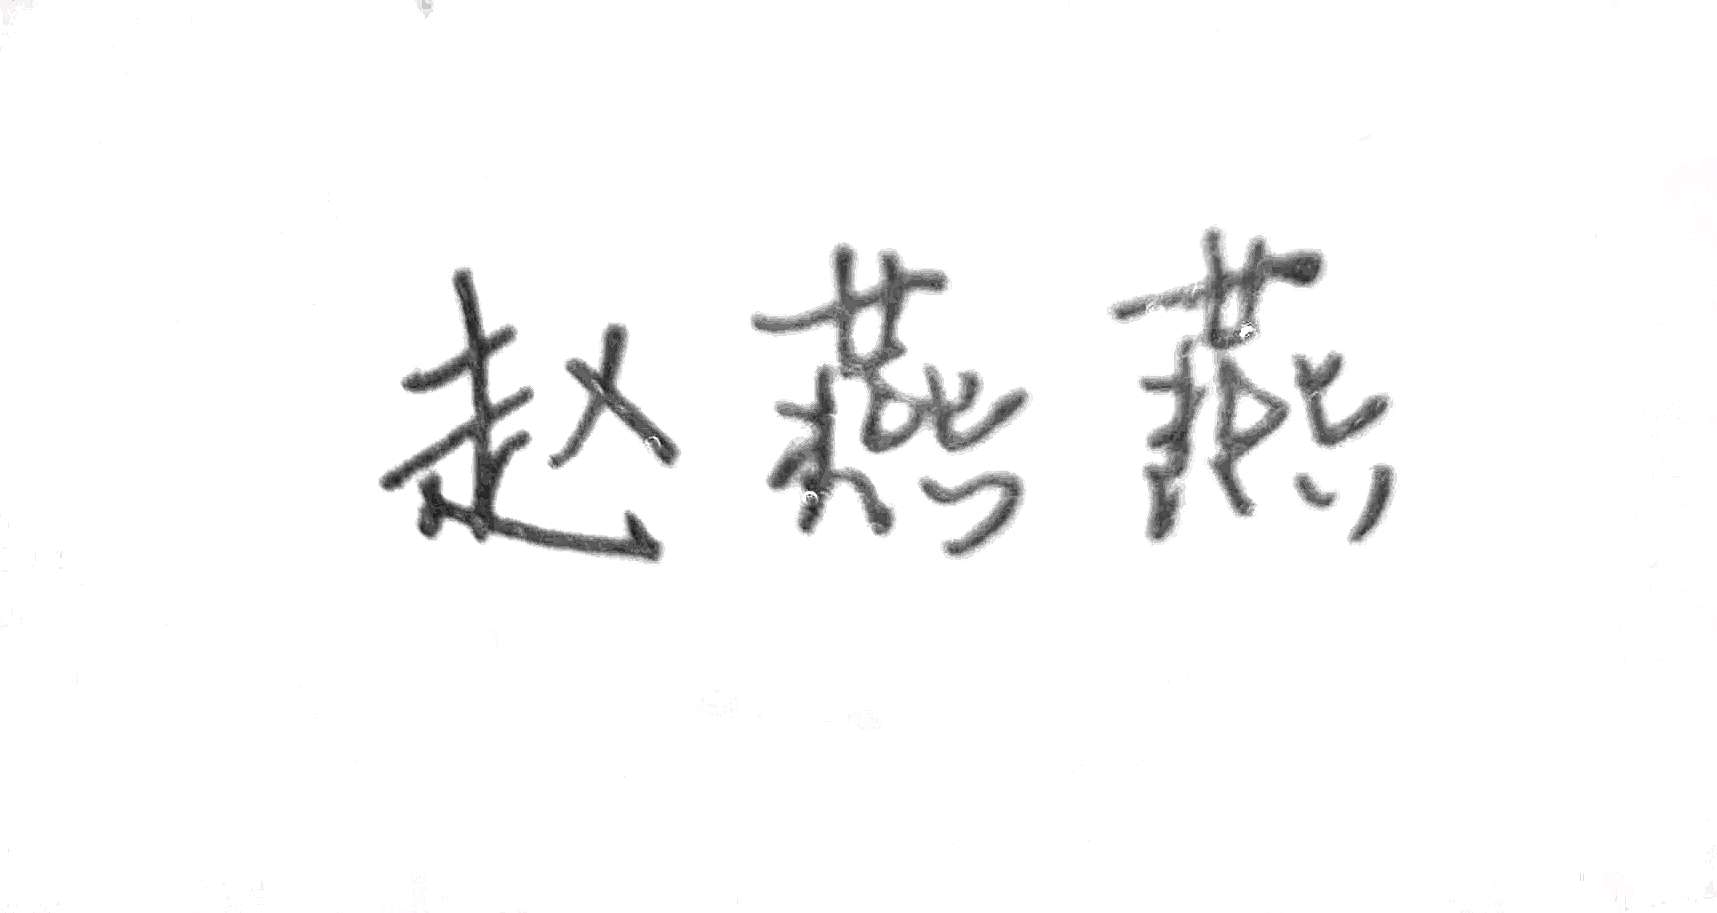 赵燕燕